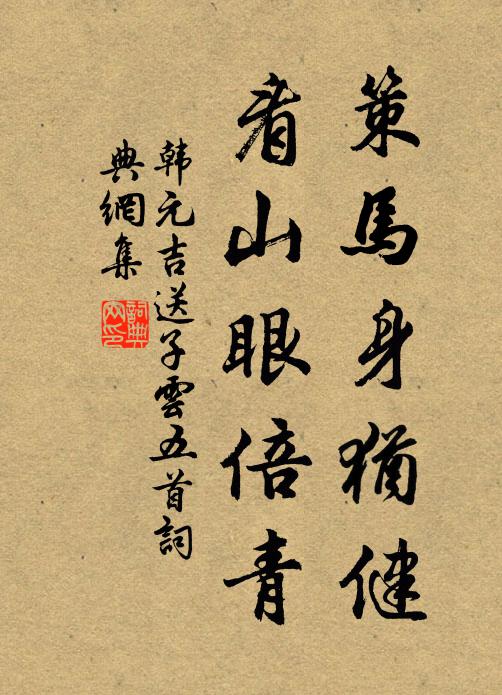 策馬身猶健
看山眼倍青
韩元吉送子雲五首詞
典網集
詞典網印